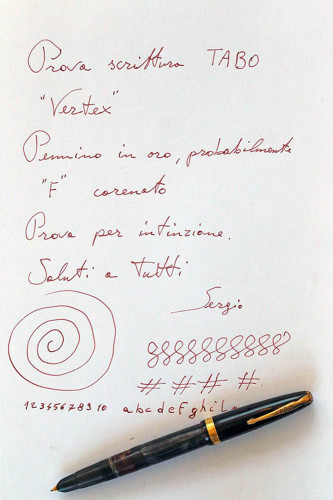 Prova scrittura TABO
"Vertex"
Pennino in oro, probabilmente
"F" carenato
Prova per intinzione.
Saluti a tutti
Sergio
# # # #
1 2 3 4 5 6 7 8 9 10 a b c d e F g h i L